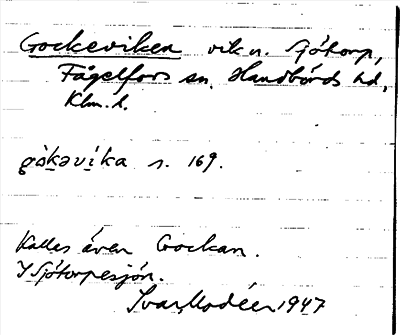 Gockeviken vik n. Sjötorp,
Fågelfors sn. Handbörds hd,
Klm. l.
gòkavìka s. 169.
Kallas även Gockan.
I Sjötorpesjön.
Ivar Modéer 1947